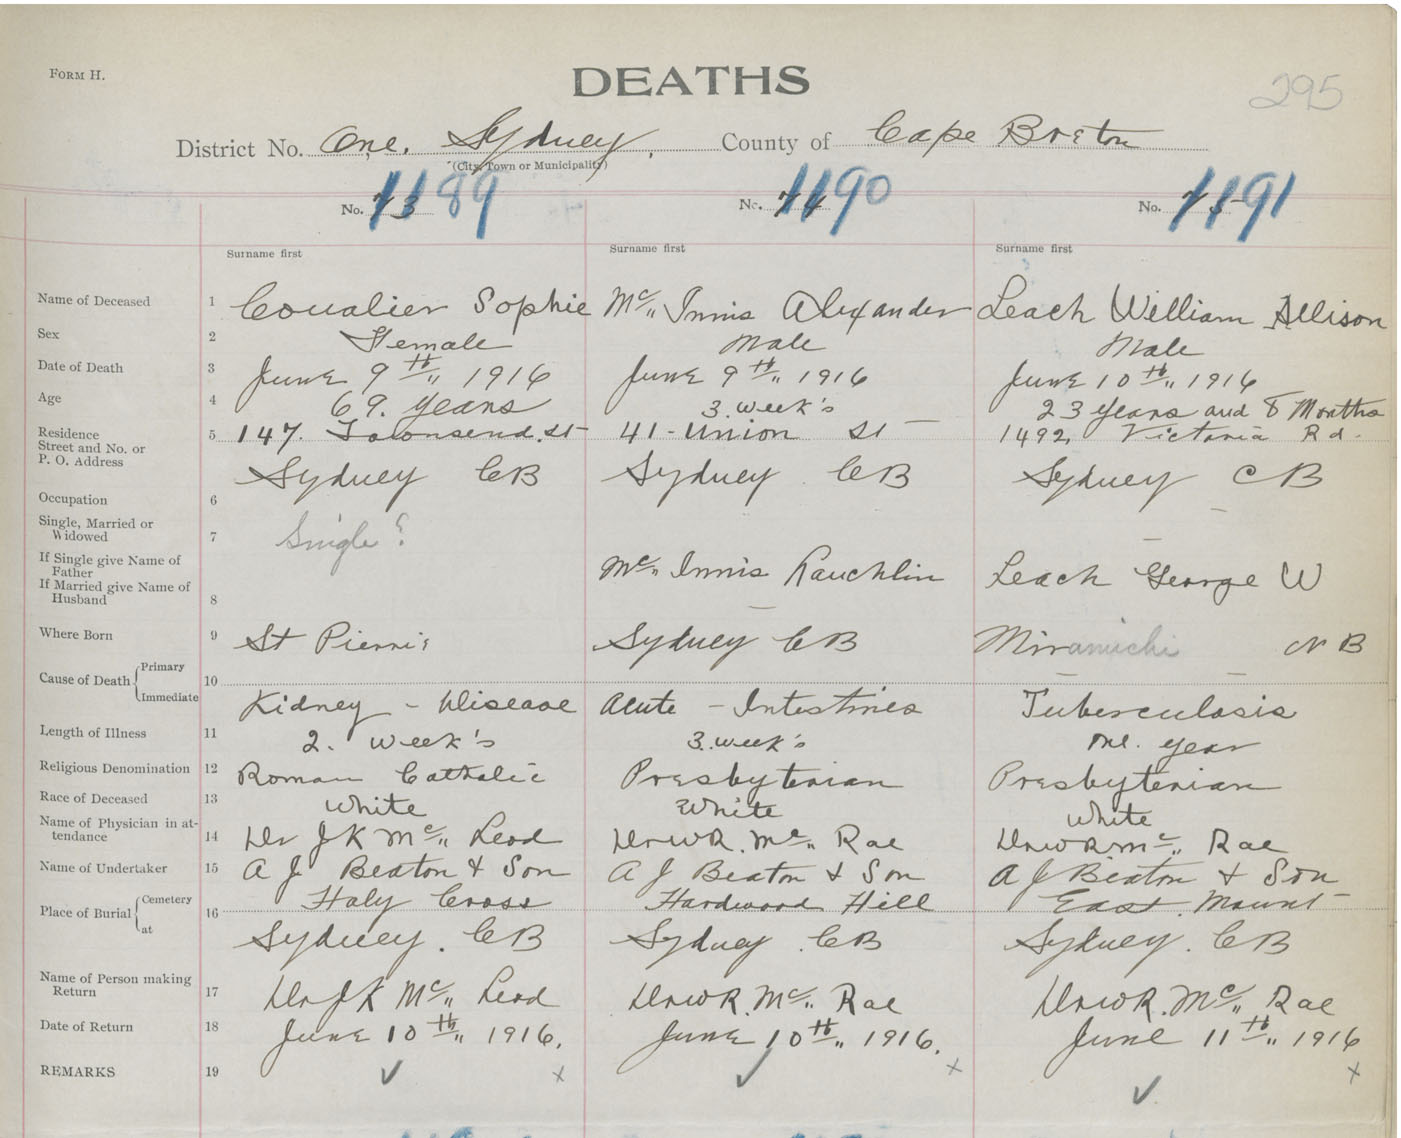 FORM H.
DEATHS
295
District No. One. Sydney. County of Cape Breton
(City, Town or Municipality)
No. 73 1189 No. 74 1190 No. 75 1191
Surname first Surname first Surname first
Name of Deceased 1 Coualier Sophie Mc,, Innis Alexander Leach William Allison
Sex 2 Female Male Male
Date of Death 3 June 9th,, 1916 June 9th,, 1916 June 10th,, 1916
Age 4 69. years 3. week's 23 years and 8 Months
Residence 5 147. Townsend. St 41 - Union St 1492, Victoria Rd.
Street and No. or
P. O. Address Sydney CB Sydney CB Sydney CB
Occupation 6 -
Single, Married or
Widowed 7 Single ? -
If Single give Name of
Father
If Married give Name of
Husband 8 Mc,, Innis Lauchlin Leach George W
Where Born 9 St Pierrie Sydney CB Miramichi N B
Cause of Death { Primary 10
Immediate Kidney - Disease Acute - Intestines Tuberculosis
Length of Illness 11 2. week's 3. week's one. year
Religious Denomination 12 Roman Catholic Presbyterian Presbyterian
Race of Deceased 13 White White White
Name of Physician in at-
tendance 14 Dr J K Mc,, Leod Dr W R. Mc,, Rae Dr W R Mc,, Rae
Name of Undertaker 15 A J Beaton & Son A J Beaton & Son A J Beaton & Son
Place of Burial { Cemetery 16 Holy Cross Hardwood Hill East. Mount
at Sydney. CB Sydney. CB Sydney. CB
Name of Person making
Return 17 Dr J K Mc,, Leod Dr W R. Mc,, Rae Dr W R. Mc,, Rae
Date of Return 18 June 10th,, 1916. June 10th,, 1916. June 11th,, 1916
REMARKS 19 ✓ x ✓ x ✓ x